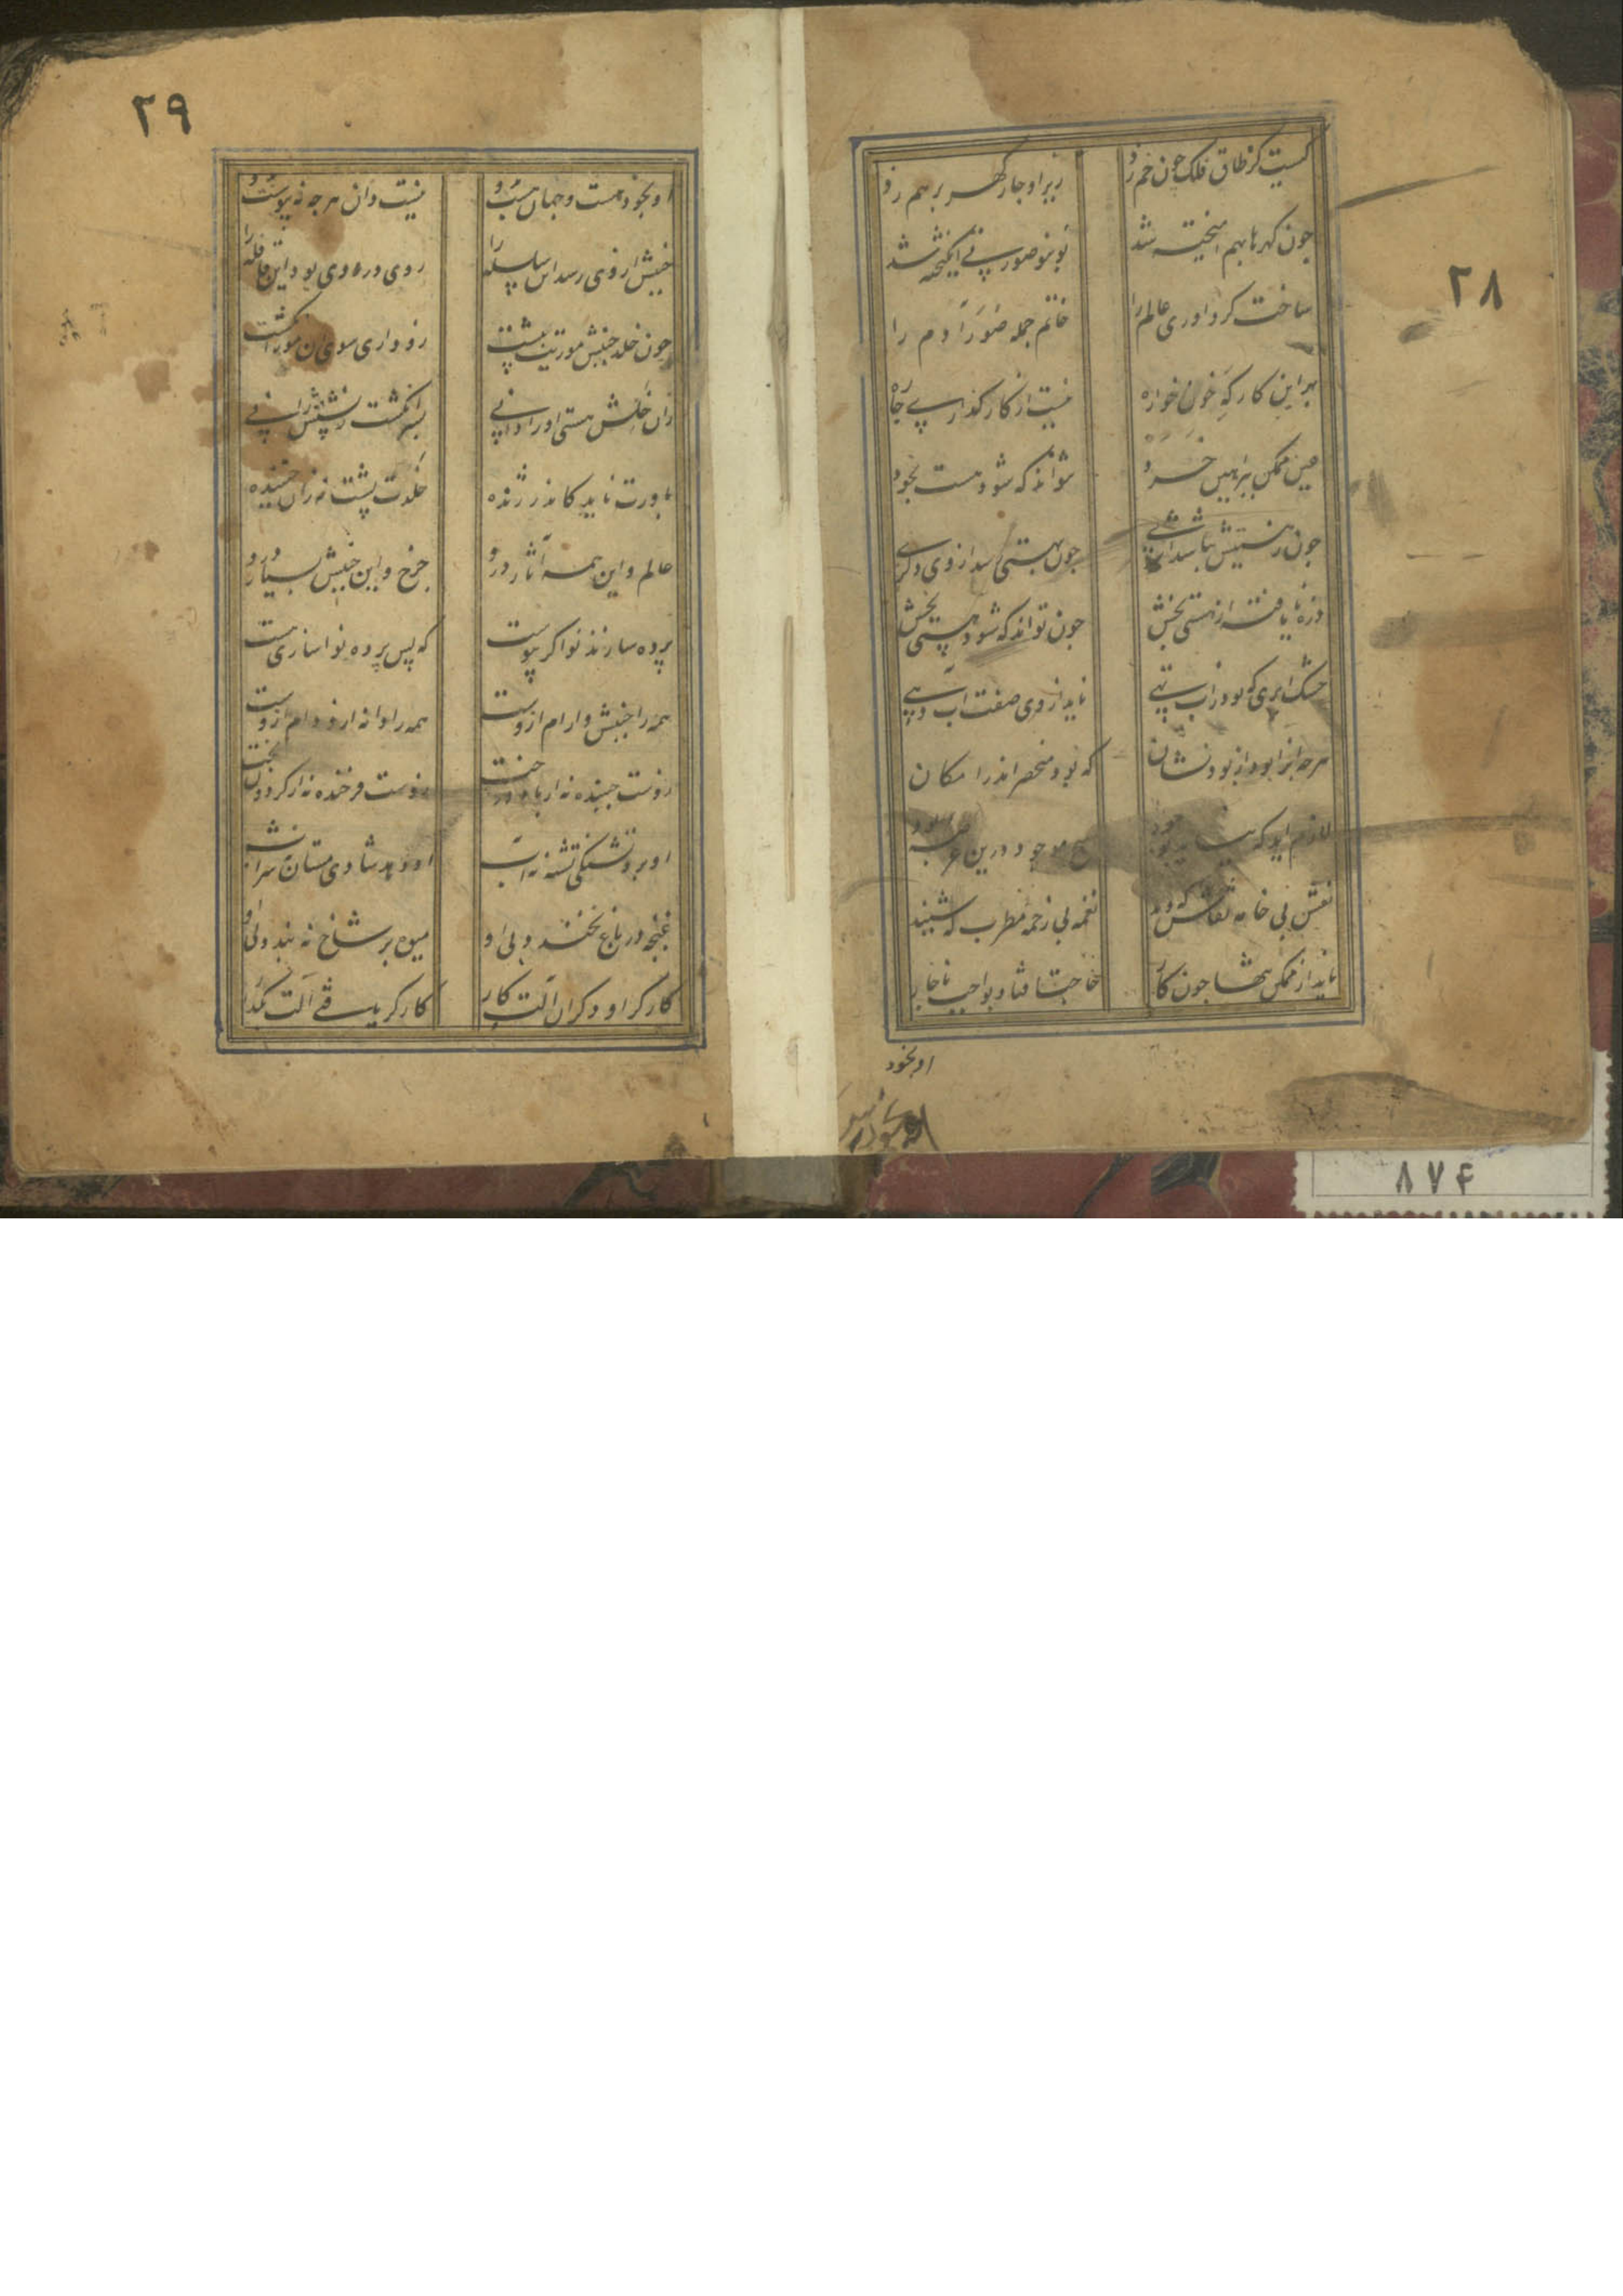 ۲۸
کیست کز طاق فلک چون خم زد
زیر او چار گهر بر هم زد
چون گهرها بهم امیخته شد
نو بنو صورتی انگیخته شد
ساخت گرد اوری عالم را
خاتم جمله صور آدم را
بر این کارکه خون خواره
نیست از کارگذاری چاره
عین ممکن ببراهین خرد
نتواند که شود هست بخود
چون ز هستیش نباشد اثری
چون بهستی رسد از وی دگری
ذره نایافته از هستی بخش
چون تواند که شود هستی بخش
خشک ابری که بود ز اب تهی
ناید از وی صفت آب دهی
هرچه انرا بود از بود نشان
که بود منحصر اندر امکان
لازم اید که نیاید بوجود
هیچ موجود درین عرصه
نقش بی خامه نقاش که دید
نغمه بی زخمه مطرب که شنید
ناید از ممکن تنها چون کار
حاجت افتاد بواجب ناچار
او بخود
۲۹
او بخود هست و جهان هست بدو
نیست دان هرچه نه پیوست بدو
جنبش از وی رسد این سلسله را
روی در وی بود این قافله را
چون خلد جنبش موریت بپشت
زود اری سوی ان مور انگشت
زان خلش هستی او را دانی
بسر انگشت ز پشتش رانی
باورت ناید کاندر ژنده
خلدت پشت نه زان جنبنده
عالم و این همه آثار درو
چرخ و این جنبش بسیار درو
پرده سازند نواگر پیوست
که پس پرده نواسازی هست
همه را جنبش و ارام ازوست
همه را دانه ازو دام ازوست
زوست جنبنده نه از باد درخت
زوست فرخنده نه از گردون بخت
او برد تشنگی تشنه نه آب
او دهد شادی مستان نه شراب
غنچه در باغ نخندد بی او
میوه بر شاخ نه بندد بی او
کارگر او دگران آلت کار
کارگر یک فی آلت بگذار
۸۷۴